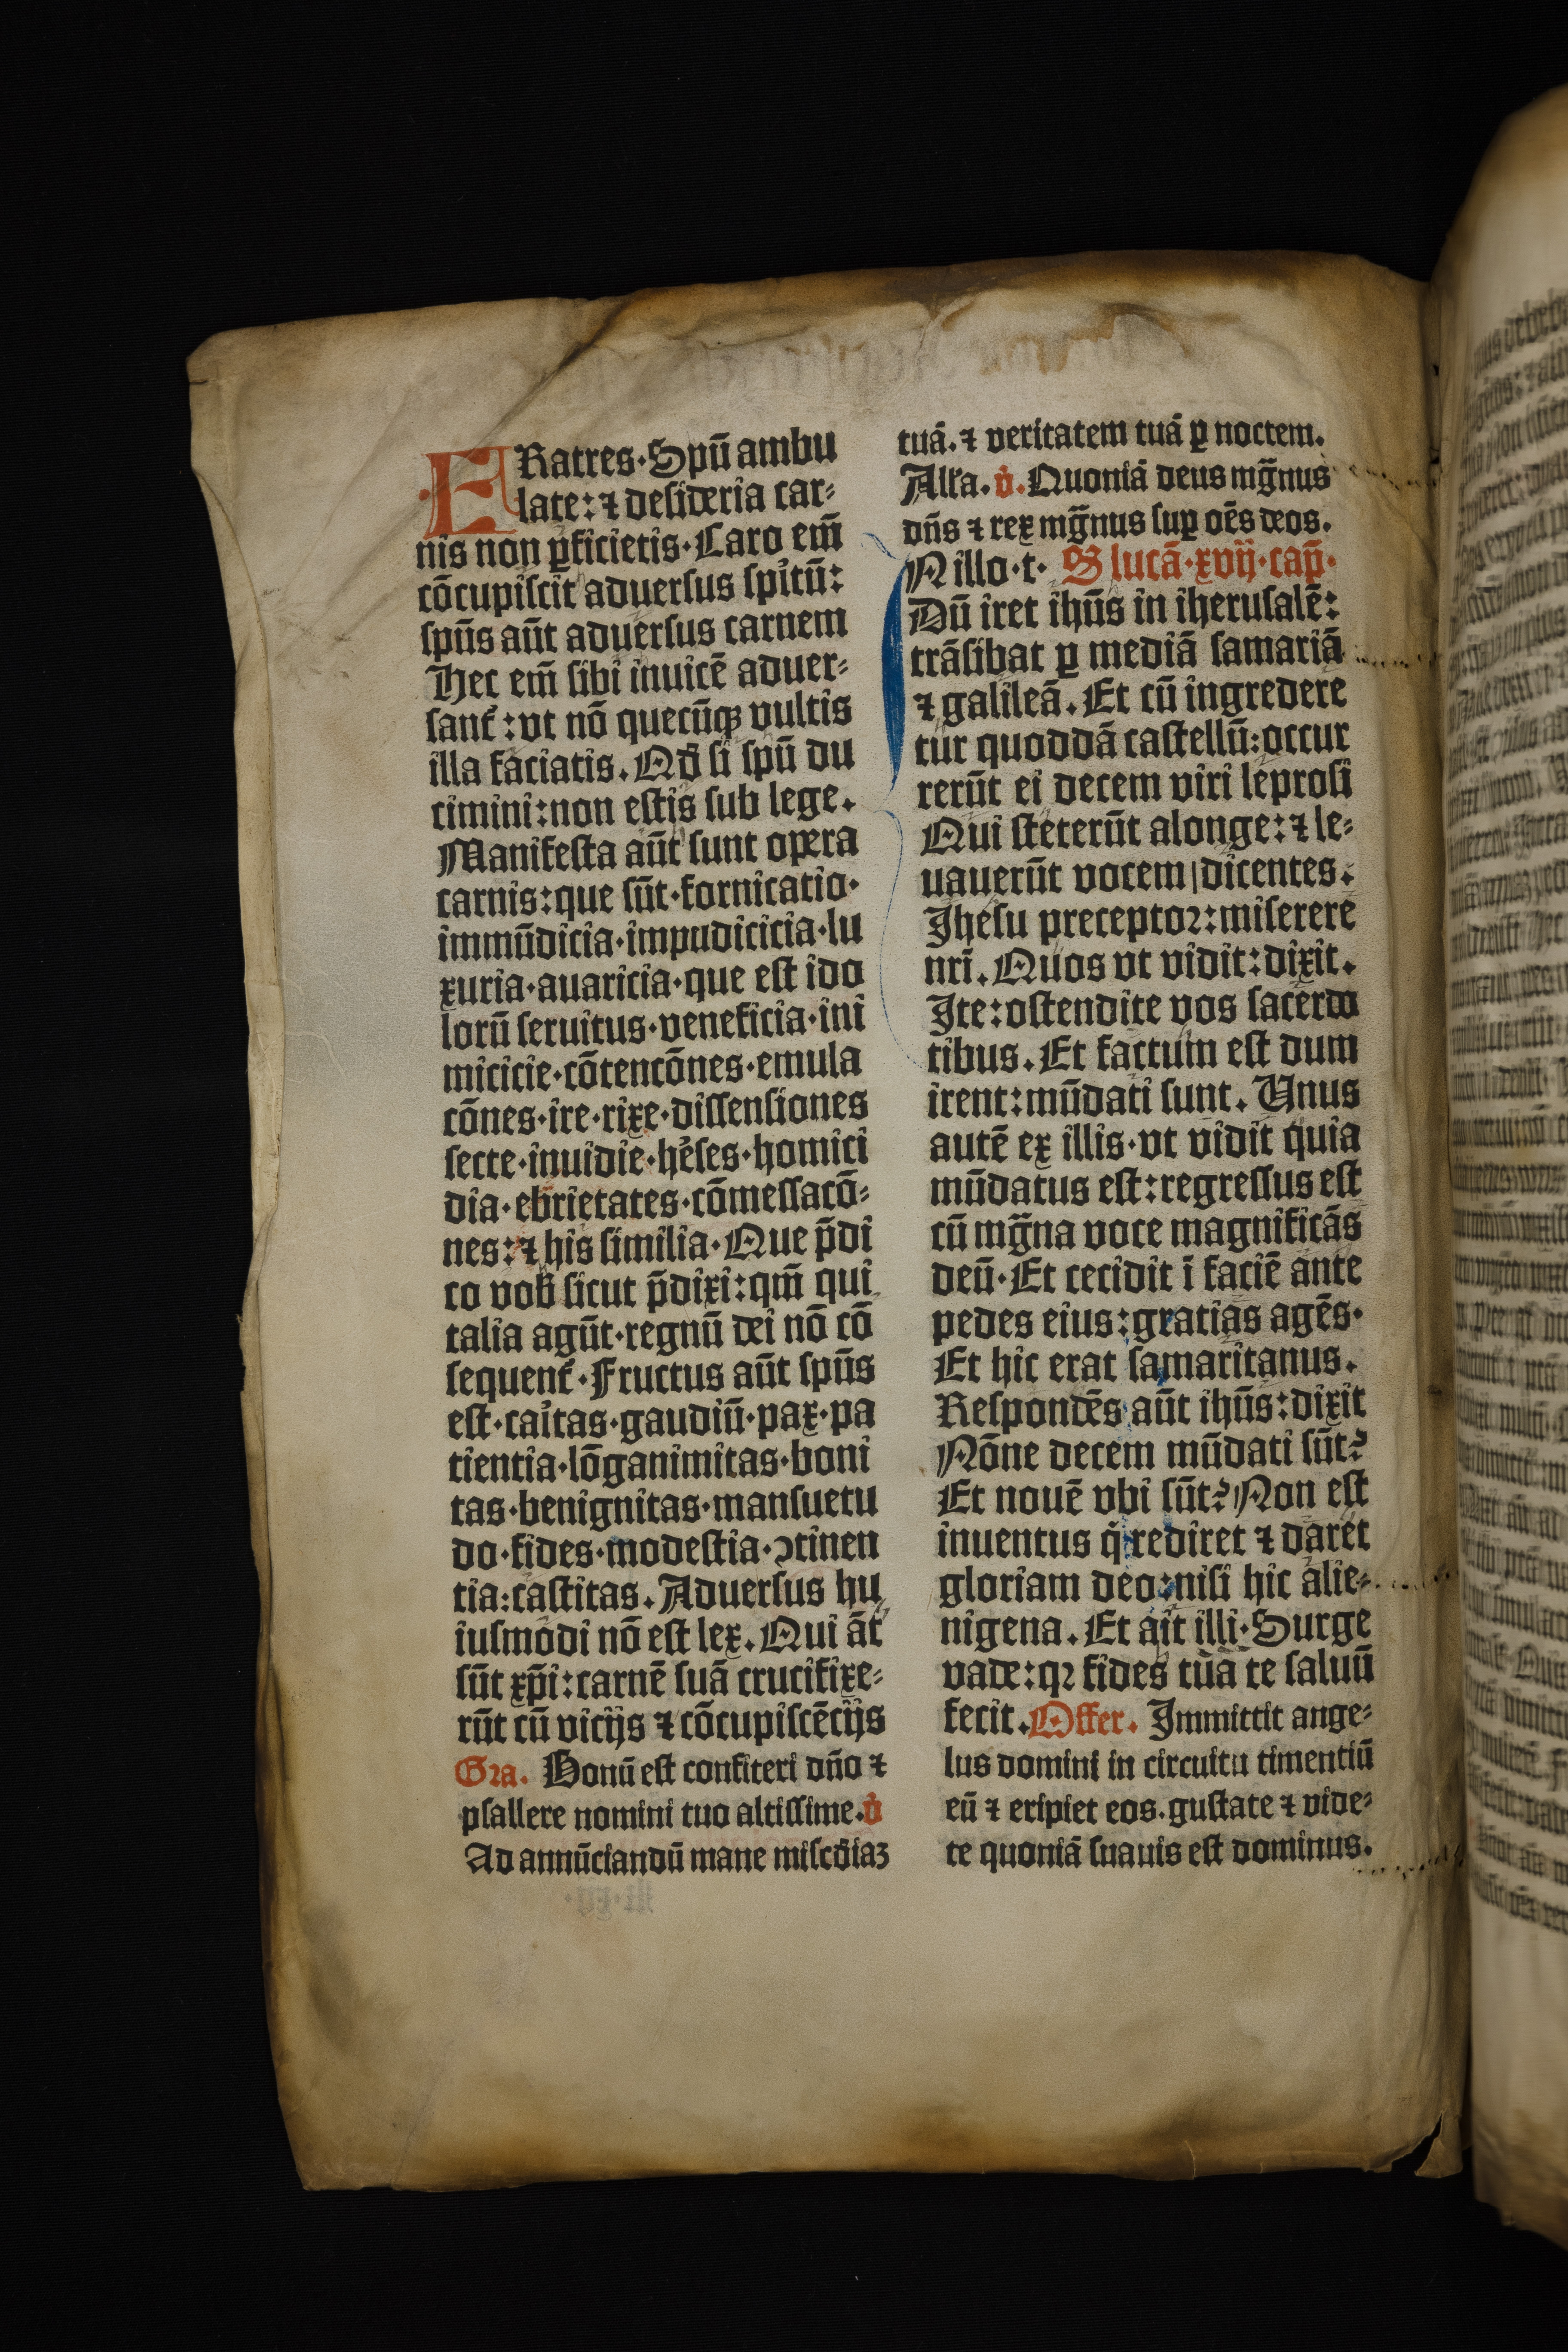 FRatres·Spū ambu
late:⁊ desideria car⸗
nis non ꝑficietis·Caro em̄
cōcupiscit aduersus spitū:
spūs aūt aduersus carnem
Hec em̄ sibi inuicē aduer⸗
sant᷑:vt nō quecūqꝫ vultis
illa faciatis.Qd̄ si spū du
cimini:non estis sub lege.
Manifesta aūt sunt opera
carnis:que sūt·fornicatio·
immūdicia·impudicicia·lu
xuria·auaricia·que est ido
lorū seruitus·veneficia·ini
micicie·cōtencōnes·emula
cōnes·ire·rixe·dissensiones
secte·inuidie·h̾eses·homici
dia·ebrietates·cōmessacō⸗
nes:⁊ his similia·Que p̄di
co vob̄ sicut p̄dixi:qm̄ qui
talia agūt·regnū dei nō cō
sequent᷑·Fructus aūt spūs
est·ca̾itas·gaudiū·pax·pa
tientia·lōganimitas·boni
tas·benignitas·mansuetu
do·fides·modestia·ↄtinen
tia:castitas.Aduersus hu
iusmodi nō est lex.Qui āt
sūt xp̄i:carnē suā crucifixe⸗
rūt cū vicijs ⁊ cōcupiscēcijs
Gra. Bonū est confiteri dn̄o ⁊
psallere nomini tuo altissime.v̾
Ad annūciandū mane misc̄diaꝫ
tuā.⁊ veritatem tuā ꝑ noctem.
All̾a.v̾.Quoniā deus mḡnus
dn̄s ⁊ rex mḡnus suꝑ oēs deos.
N illo·t· S lucā·xvij·cap̄·
Dū iret ihūs in iherusalē:
trāsibat ꝑ mediā samariā
⁊ galileā.Et cū ingredere
tur quoddā castellū:occur
rerūt ei decem viri leprosi
Qui steterūt alonge:⁊ le⸗
uauerūt vocem|dicentes.
Jhesu preceptoꝛ:miserere
nr̄i.Quos vt vidit:dixit.
Jte:ostendite vos sacerdo
tibus.Et factum est dum
irent:mūdati sunt.Unus
autē ex illis·vt vidit quia
mūdatus est:regressus est
cū mḡna voce magnificās
deū·Et cecidit ī faciē ante
pedes eius:gratias agēs·
Et hic erat samaritanus.
Respondēs aūt ihūs:dixit
Nōne decem mūdati sūt?
Et nouē vbi sūt?Non est
inuentus q̾ rediret ⁊ daret
gloriam deo:nisi hic alie⸗
nigena.Et ait illi·Surge
vade:qꝛ fides tua te saluū
fecit.Offer. Jmmittit ange⸗
lus domini in circuitu timentiū
eū ⁊ eripiet eos.gustate ⁊ vide⸗
te quoniā suauis est dominus.